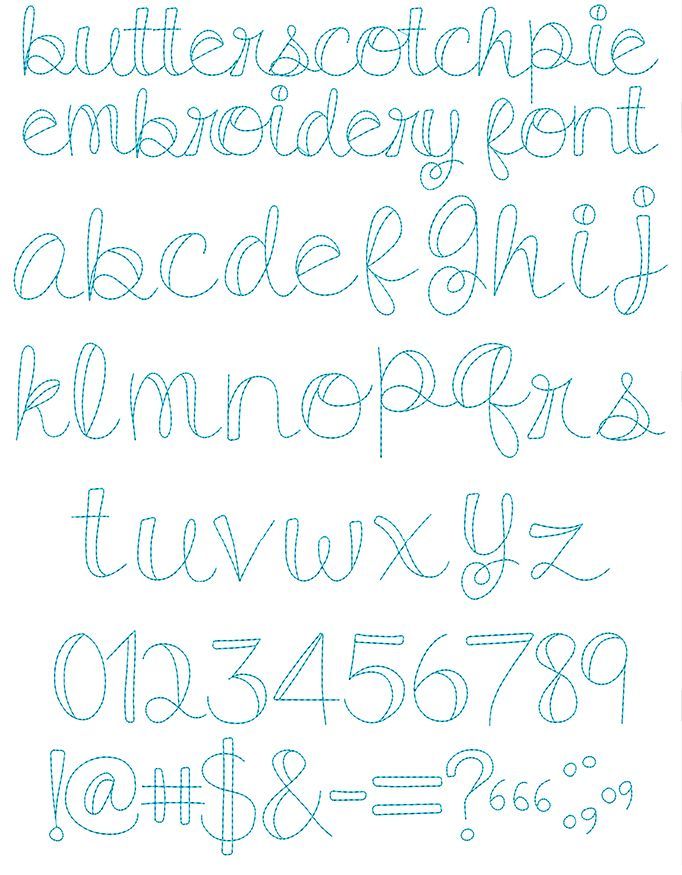 butterscotchpie
embroidery font
abcdefghij
klmnopqrs
tuvwxyz
0123456789
!@#$&-=?‘“:;,”